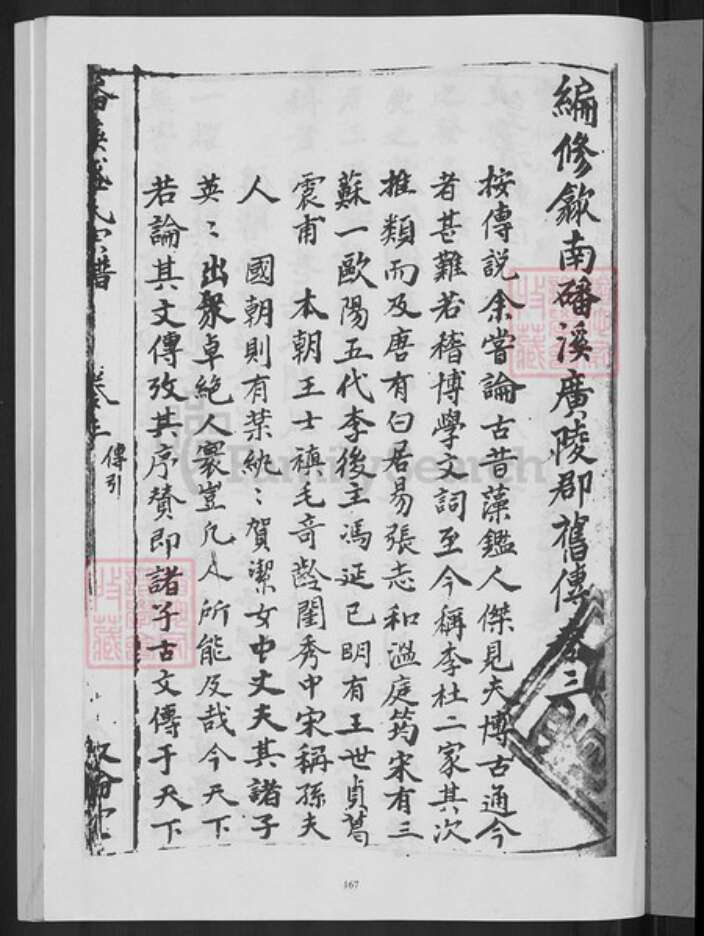 編修歙南磻溪廣陵郡舊傳卷三
按傳説余嘗論古昔藻鑑人傑見夫博古通今
者甚難若稽博學文詞至今稱李杜二家其次
推類而及唐有白居易張志和溫庭筠宋有三
蘇一歐陽五代李後主馮延巳明有王世貞葛
震甫 本朝王士禛毛奇齡閨秀中宋稱孫夫
人 國朝則有葉紈〻賀潔女中丈夫其諸子
英〻出衆卓絶人寰豈凡人所能及哉今天下
若論其文傳攷其序贊即諸子古文傳于天下
氏宗譜 卷三 傳引
FamilySearch
167